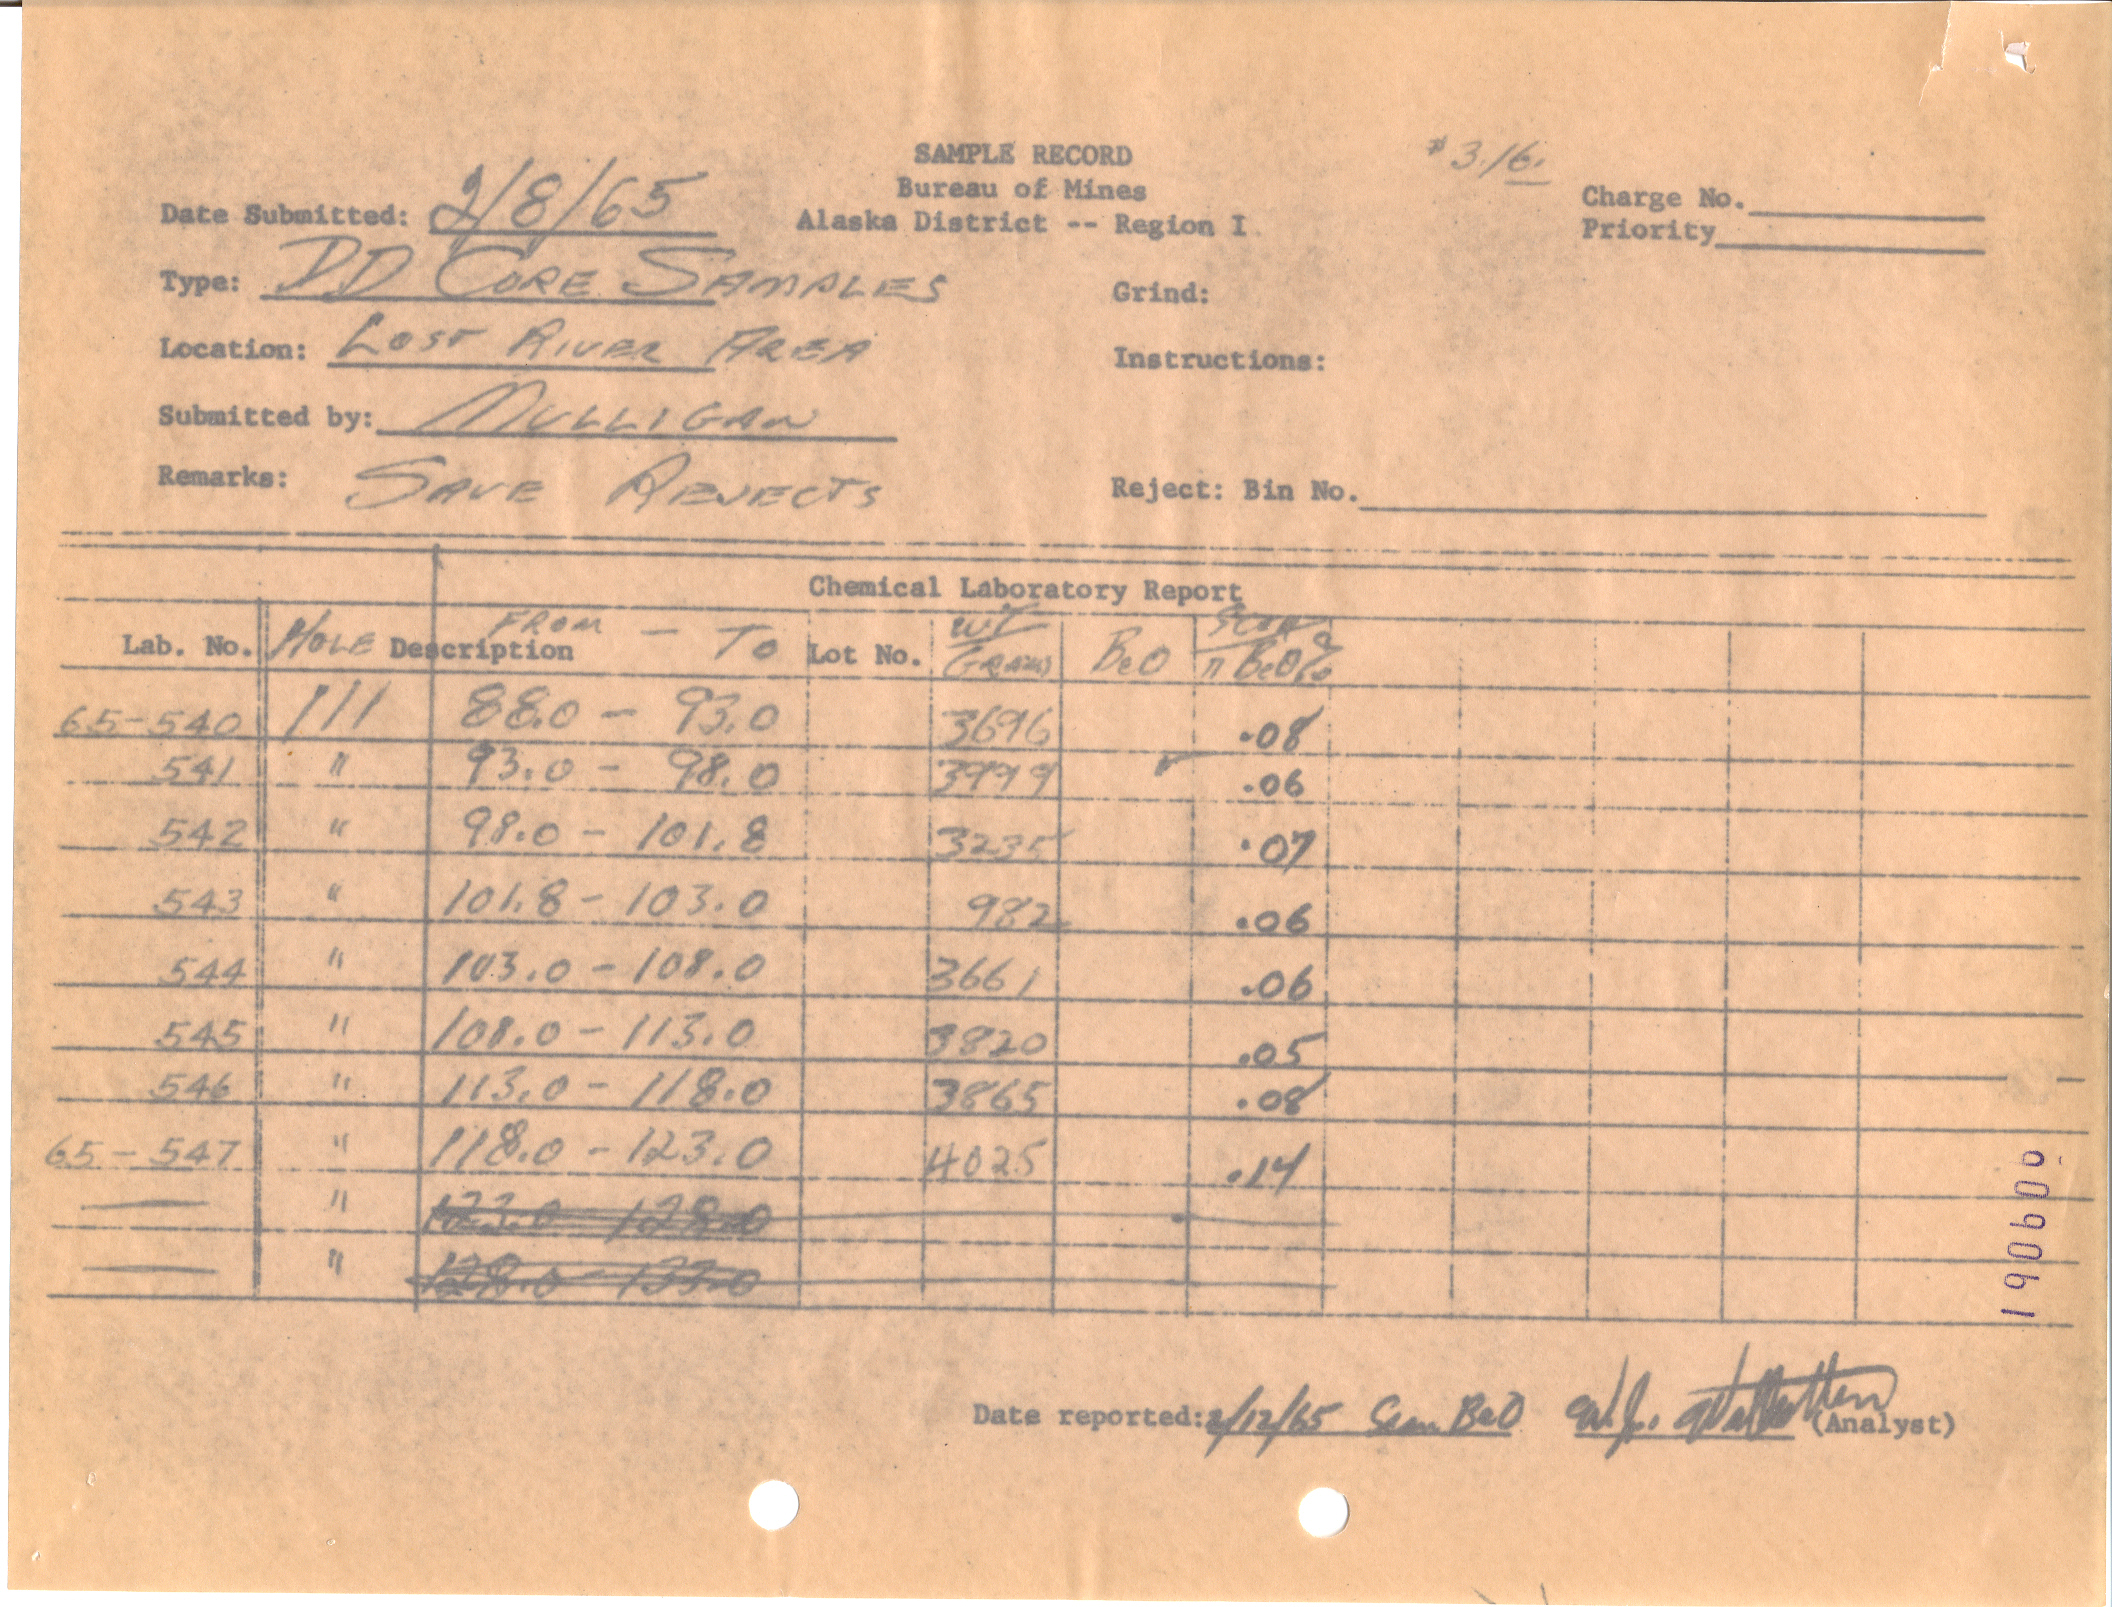 SAMPLE RECORD
Bureau of Mines
Alaska District -- Region I
$3.16.
Charge No.
Priority
Date Submitted: 2/8/65
Type: DD CORE SAMPLES
Grind:
Location: LOST RIVER AREA
Instructions:
Submitted by: MULLIGAN
Remarks: SAVE REJECTS
Reject: Bin No.
Chemical Laboratory Report
Lab. No. HOLE Description FROM - TO Lot No. WT GRAMS BeO Scan BeO%
65-540 111 88.0 - 93.0 3696 .08
541 " 93.0 - 98.0 .06
542 " 98.0 - 101.8 3235 .07
543 " 101.8 - 103.0 982 .06
544 " 103.0 - 108.0 3661 .06
545 " 108.0 - 113.0 3820 .05
546 " 113.0 - 118.0 3865 .08
65-547 " 118.0 - 123.0 4025 .14
— " 123.0 - 128.0
— " 128.0 - 133.0
Date reported: 2/12/65 Scan BeO W.J. (Analyst)